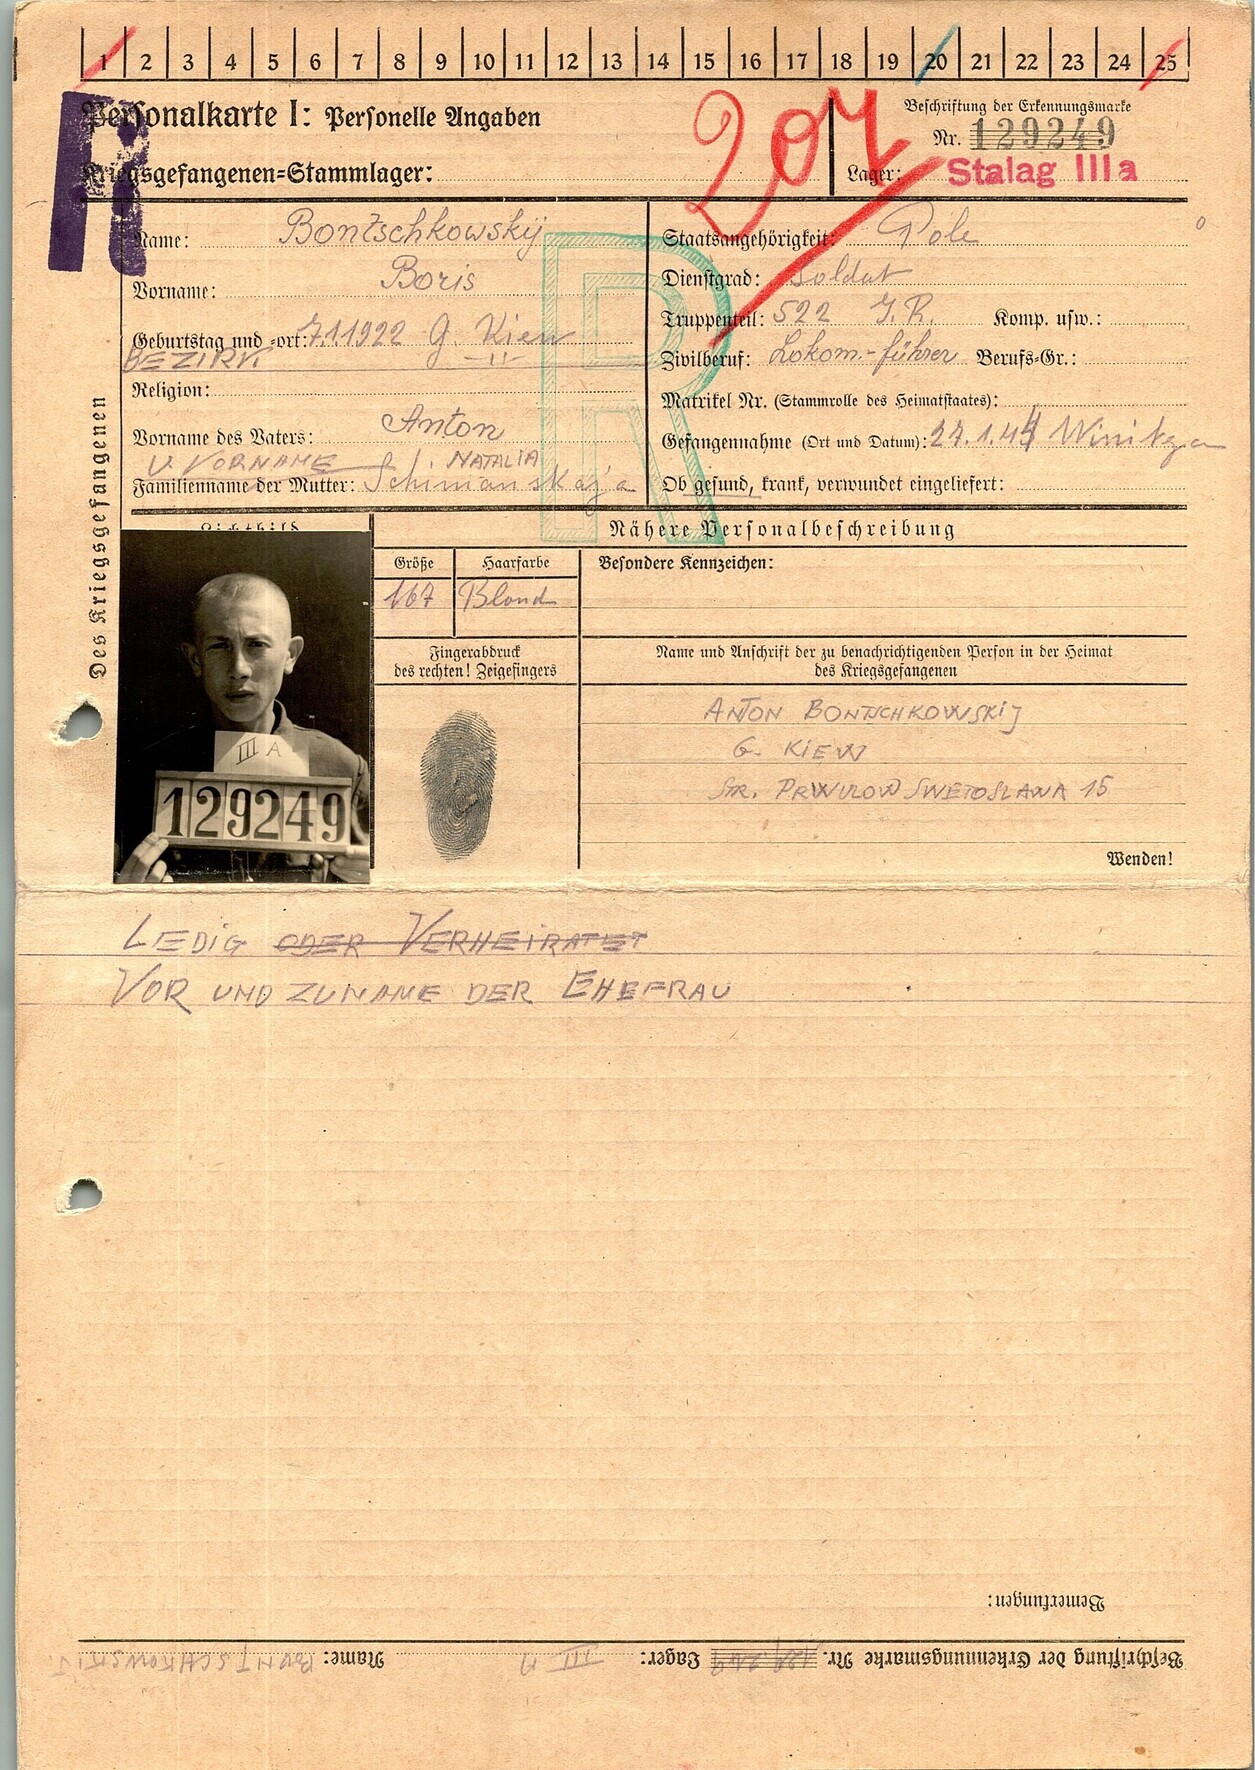 1 2 3 4 5 6 7 8 9 10 11 12 13 14 15 16 17 18 19 20 21 22 23 24 25
R
Personalkarte I: Personelle Angaben
Kriegsgefangenen=Stammlager:
207
Beschriftung der Erkennungsmarke
Nr. 129249
Lager: Stalag IIIa
Des Kriegsgefangenen
Name: Bontschkowskij
Vorname: Boris
Geburtstag und =ort: 7.1.1922 G. Kiew
BEZIRK. -"-
Religion:
Vorname des Vaters: Anton
U. VORNAME NATALIA
Familienname der Mutter: Schimanskaja
R
Staatsangehörigkeit: Pole
Dienstgrad: Soldat
Truppenteil: 522 J. R. Komp. usw.:
Zivilberuf: Lokom.-führer Berufs=Gr.:
Matrikel Nr. (Stammrolle des Heimatstaates):
Gefangennahme (Ort und Datum): 27.1.44 Winitza
Ob gesund, krank, verwundet eingeliefert:
Lichtbild
Nähere Personalbeschreibung
Größe Haarfarbe Besondere Kennzeichen:
167 Blond
Fingerabdruck
des rechten! Zeigefingers
Name und Anschrift der zu benachrichtigenden Person in der Heimat
des Kriegsgefangenen
ANTON BONTSCHKOWSKIJ
G. KIEW
STR. SWETOSLAWA 15
III A
129249
Wenden!
LEDIG ODER VERHEIRATET
VOR UND ZUNAME DER EHEFRAU
Bemerkungen:
Beschriftung der Erkennungsmarke Nr. 129249 Lager: III A Name: BONTSCHKOWSKIJ